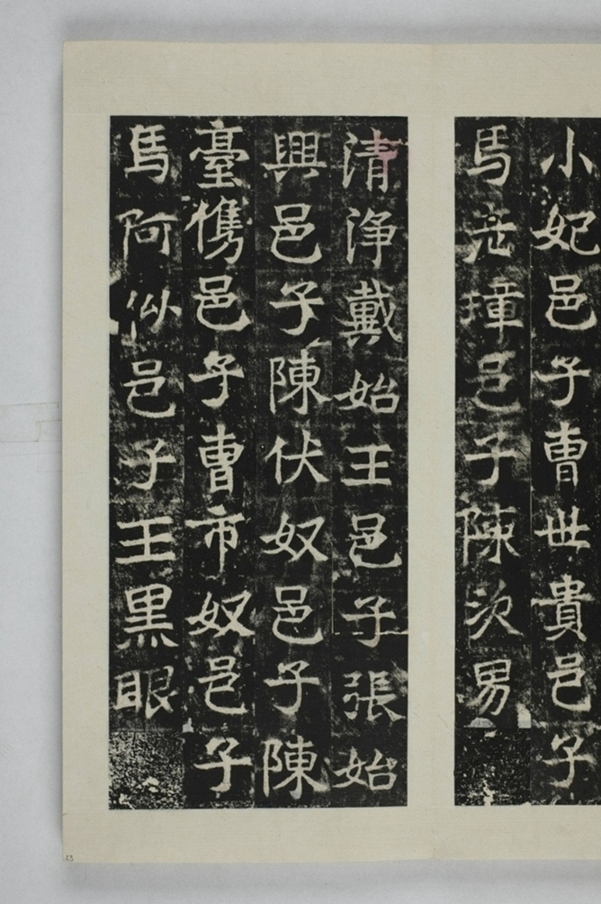 小妃邑子曺世貴邑子
馬老撞邑子陳次男
清淨戴始王邑子張始
興邑子陳伏奴邑子陳
臺㑺邑子曺市奴邑子
馬阿似邑子王黑眼
13